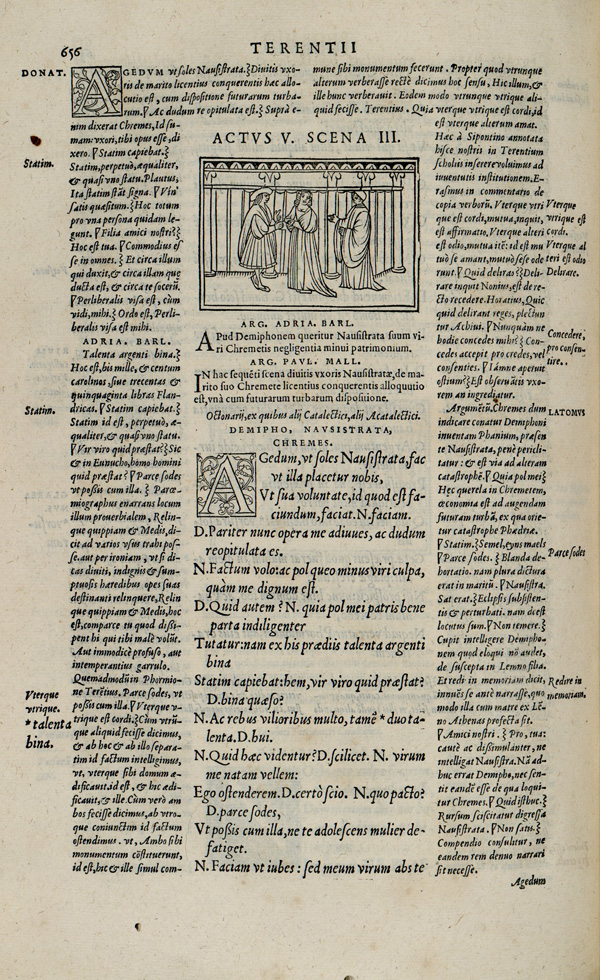 656
TERENTII
DONAT.
AGEDVM vt soles Nausistrata. Diuitis vxo-
ris de marito licentius conquerentis hæc allo-
cutio est, cum dispositione futurarum turba-
rum. Ac dudum re opitulata es. Supra e-
nim dixerat Chremes, Id su-
mam: vxori, tibi opus esse, di
xero. Statim capiebat.
Statim.
Statim, perpetuò, æqualiter,
& quasi vno statu. Plautus,
Ita statim stāt signa. Vin'
satis quæsitum. Hoc totum
pro vna persona quidam le-
gunt. Filia amici nostri?
Hoc est tua. Commodius es
se in omnes. Et circa illum
qui duxit, & circa illam quę
ducta est, & circa te socerū.
Perliberalis visa est, cùm
vidi, mihi. Ordo est, Perli-
beralis visa est mihi.
ADRIA. BARL.
Talenta argenti bina.
Hoc est, bis mille, & centum
carolinos, siue trecentas &
quinquaginta libras Flan-
dricas. Statim capiebat.
Statim.
Statim id est, perpetuò, æ-
qualiter, & quasi vno statu.
Vir viro quid præstat? Sic
& in Eunucho, homo homini
quid præstat? Parce sodes
vt possis cum illa. Parœ-
miographus enarrans locum
illum prouerbialem, Relin-
que quippiam & Medis, di-
cit ad varios vsus trahi pos-
se. aut per ironiam, vt si di-
cas diuiti, indignis & sum-
ptuosis hæredibus opes suas
destinanti relinquere, Relin
que quippiam & Medis, hoc
est, comparce tu quod dissi-
pent hi qui tibi malè volūt.
Aut immodicè profuso, aut
intemperantius garrulo.
Quemadmodū in Phormio-
ne Terētius. Parce sodes, vt
possis cum illa. Vterque v-
Vterque
vtrique.
trique est cordi. Cùm vtrū-
* talenta
bina.
que aliquid fecisse dicimus,
& ab hoc & ab illo separa-
tim id factum intelligimus,
vt, vterque sibi domum æ-
dificauit. id est, & hic ædi-
ficauit, & ille. Cùm verò am
bos fecisse dicimus, ab vtro-
que coniunctim id factum
ostendimus. vt, Ambo sibi
monumentum cōstituerunt,
id est, hic & ille simul com-
mune sibi monumentum fecerunt. Propter quod vtrunque
alterum verberasse rectè dicimus hoc sensu, Hic illum, &
ille hunc verberauit. Eodem modo vtrunque vtrique ali-
quid fecisse. Terentius. Quia vterque vtrique est cordi, id
est vterque alterum amat.
ACTVS V. SCENA III.
ARG. ADRIA. BARL.
APud Demiphonem queritur Nausistrata suum vi-
ri Chremetis negligentia minui patrimonium.
ARG. PAVL. MALL.
IN hac sequēti scena diuitis vxoris Nausistratæ, de ma-
rito suo Chremete licentius conquerentis alloquutio
est, vnà cum futurarum turbarum dispositione.
Octonarij, ex quibus alij Catalectici, alij Acatalectici.
DEMIPHO, NAVSISTRATA,
CHREMES.
AGedum, vt soles Nausistrata, fac
vt illa placetur nobis,
Vt sua voluntate, id quod est fa-
ciundum, faciat. N. faciam.
D. Pariter nunc opera me adiuues, ac dudum
re opitulata es.
N. Factum volo: ac pol queo minus viri culpa,
quàm me dignum est.
D. Quid autem? N. quia pol mei patris bene
parta indiligenter
Tutatur: nam ex his prædiis talenta argenti
bina
Statim capiebat: hem, vir viro quid præstat?
D. bina quæso?
N. Ac rebus vilioribus multo, tamē * duo ta-
lenta. D. hui.
N. Quid hæc videntur? D. scilicet. N. virum
me natam vellem:
Ego ostenderem. D. certò scio. N. quo pacto?
D. parce sodes,
Vt possis cum illa, ne te adolescens mulier de-
fatiget.
N. Faciam vt iubes: sed meum virum abs te
Hæc à Sipontino annotata
hisce nostris in Terentium
scholiis inserere voluimus ad
iuuentutis institutionem. E-
rasmus in commentario de
copia verborū. Vterque vtri
Vterque
vtrique est
cordi.
que est cordi, mutua, inquit,
est affirmatio. Vterque alteri
Vterque al
teri est odio
est odio, mutua itē: id est mu
tuò se amant, mutuò sese ode
runt. Quid deliras? Deli-
Delirare.
rare inquit Nonius, est de re-
cto recedere. Horatius, Quic
quid delirant reges, plectun
tur Achiui. Nunquam ne
hodie concedes mihi? Con-
Concedere,
pro consen-
tire.
cedes accepit pro credes, vel
consenties. Iámne aperuit
ostium? Est obseruātis vxo-
rem an ingrediatur.
LATOMVS
Argumētū. Chremes dum
indicare conatur Demiphoni
inuentam Phanium, præsen
te Nausistrata, penè pericli-
tatur: & est via ad alteram
catastrophē. Quia pol mei
Hæc querela in Chremetem,
œconomia est ad augendam
futuram turbā, ex qua orie-
tur catastrophe Phædriæ.
Statim. Semel,
Parce sodes. Blanda de-
Parce sodes
hortatio. nam plura dictura
erat in maritū. Nausistra.
Sat erat. Eclipsis subsisten-
tis & perturbati. nam deest
locutus sum. Non temere.
Cupit intelligere Demipho-
nem quod eloqui nō audet,
de suscepta in Lemno filia.
Et redi in memoriam dicit,
Redire in
memoriam.
innuēs se antè narrasse, quo
modo illa cum matre ex Lē-
no Athenas profecta sit.
Amici nostri. Pro, tua:
cautè ac dissimulanter, ne
intelligat Nausistra. Nā ad-
huc errat Demipho, nec sen-
tit eandē esse de qua loqui-
tur Chremes. Quid istbuc.
Rursum sciscitatur digressa
Nausistrata. Non satis.
Compendio consulitur, ne
eandem rem denuo narrari
sit necesse.
Agedum